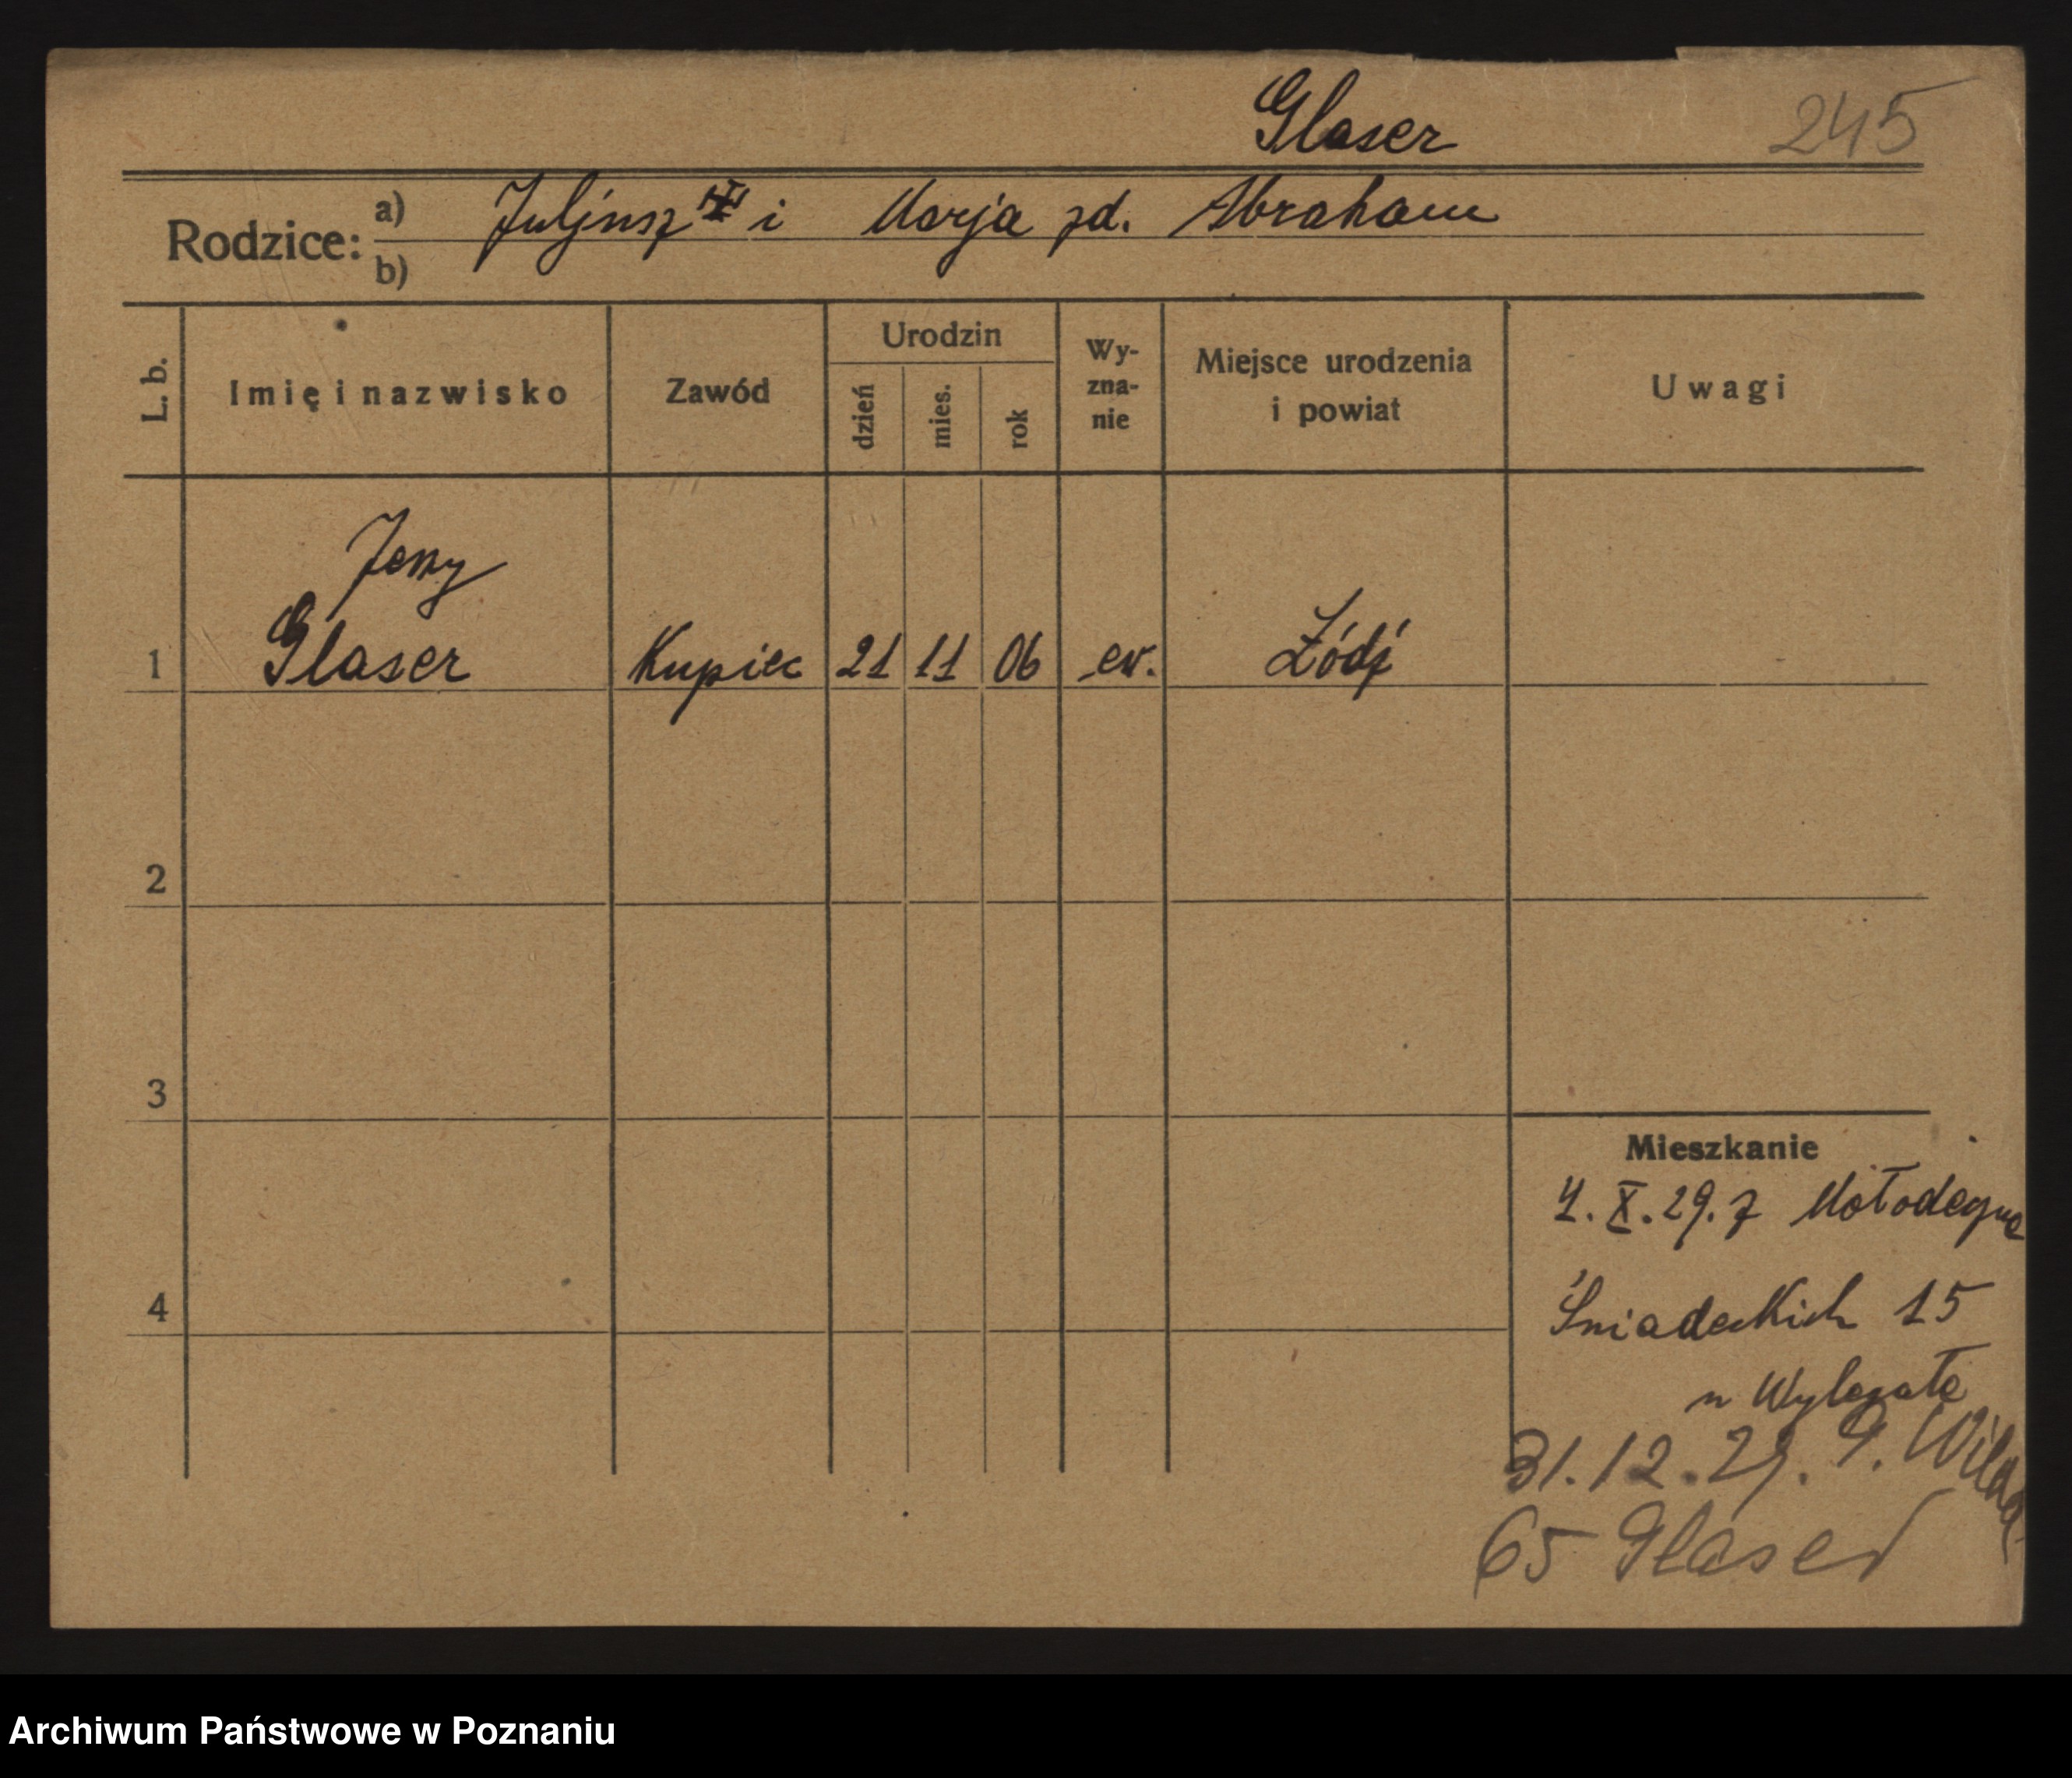 Glaser 245
Rodzice: a) Juljusz i Marja zd. Abraham
b)
L. b. Imię i nazwisko Zawód Urodzin dzień mies. rok Wy-zna-nie Miejsce urodzenia i powiat Uwagi
Jerzy
1 Glaser Kupiec 21 11 06 ew. Łódź
2
3
Mieszkanie
4. X. 29. z
Śniadeckich 15
4
u Wylegała
31. 12. 29. G. Wilda
65 Glaser
Archiwum Państwowe w Poznaniu